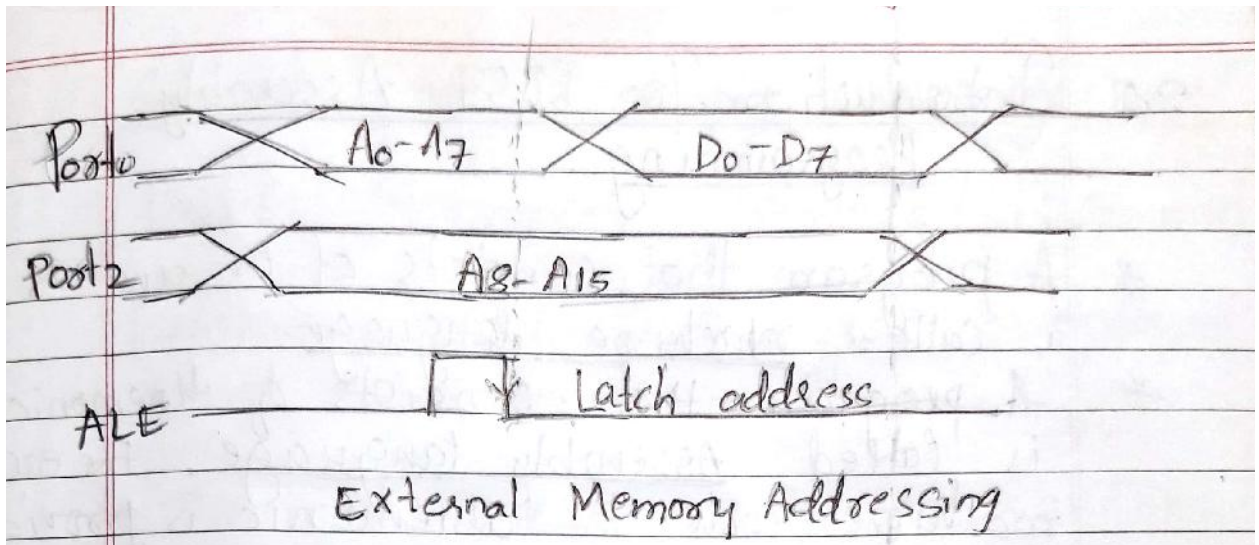 Port0 A0-A7 D0-D7
Port2 A8-A15
ALE Latch address
External Memory Addressing